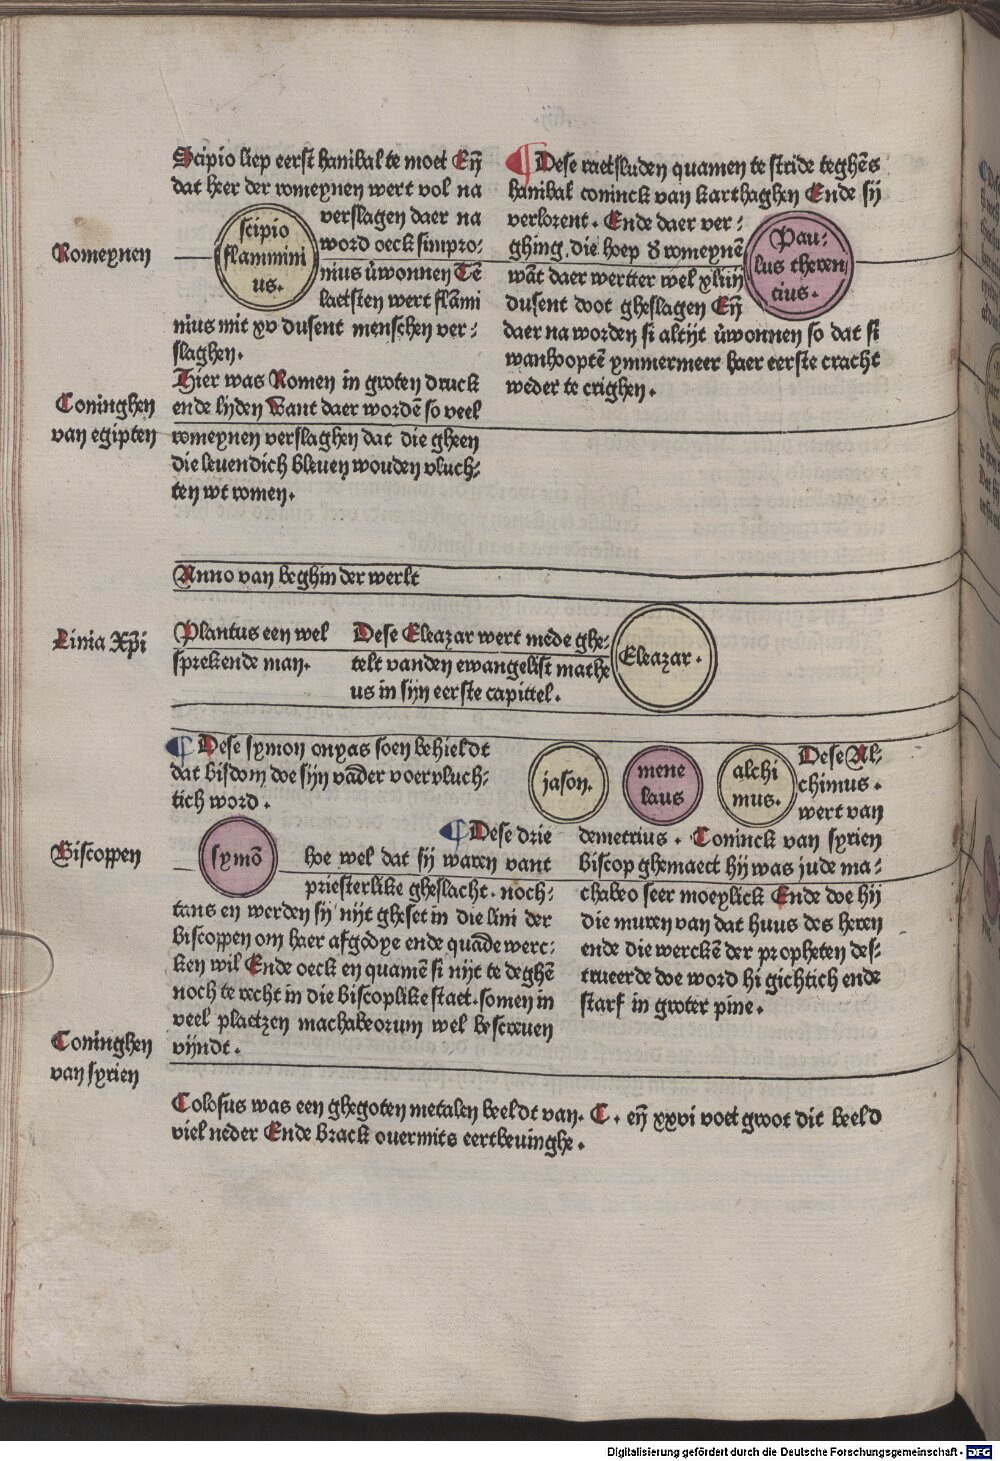 Scipio liep eerst hanibal te moet Eñ
dat heer der romeynen wert vol na
verslagen daer na
word oeck simpro⸗
nius v̄wonnen Tē
laetsten wert flāmi
nius mit xv dusent menschen ver⸗
slaghen.
scipio
flammini
us.
Romeynen
Hier was Romen in groten druck
ende lijden Want daer wordē so veel
romeynen verslaghen dat die gheen
die leuendich bleuen wouden vluch⸗
ten wt romen.
Coninghen
van egipten
¶ Dese raetsluden quamen te stride teghēs
hanibal coninck van karthaghen Ende sij
verlorent. Ende daer ver⸗
ghing die hoep d romeynē
wāt daer wertter wel xliiij
dusent doot gheslagen Eñ
daer na worden si altijt v̄wonnen so dat si
wanhooptē ymmermeer haer eerste cracht
weder te crighen.
Pau⸗
lus theren
cius.
Anno van beghin der werlt
Linia Xp̄i
Plantus een wel
sprekende man.
Dese Eleazar wert mede ghe⸗
telt vanden ewangelist mathe
us in sijn eerste capittel.
Eleazar.
¶ Dese symon onyas soen behieldt
dat bisdom doe sijn vāder voervluch⸗
tich word.
Biscoppen
symō
jason.
mene
laus
alchi
mus.
¶ Dese drie
hoe wel dat sij waren vant
priesterlike gheslacht. noch⸗
tans en werden sij nijt gheset in die lini der
Biscoppen om haer afgodye ende quāde werc⸗
ken wil Ende oeck en quamē si nijt te deghē
noch te recht in die Biscoplike staet. so men in
veel plaetzen machabeorum wel bescreuen
vijndt.
Dese Al⸗
chimus.
wert van
demetrius. Coninck van syrien
Biscop ghemaect hij was jude ma⸗
chabeo seer moeylick Ende doe hij
die muren van dat huus des heren
ende die werckē der propheten des⸗
trueerde doe word hi gichtich ende
starf in groter pine.
Coninghen
van syrien
Colosus was een ghegoten metalen beeldt van. C. eñ xxvi voet groot dit beeld
viel neder Ende brack ouermits eertbeuinghe.
Digitalisierung gefördert durch die Deutsche Forschungsgemeinschaft - DFG